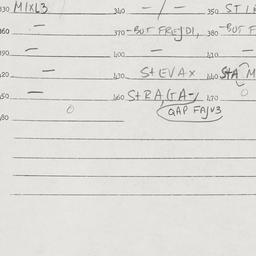 330 MIXL3 340 — / — 350
360 — 370 -BUT FREJDI, 380 -BUT F
390 — 400 — 410 —
420 — 430 StEVAX 440 StA M
450 — 460 StRA(TA-) 470
480 0 0
QAP FAJV3